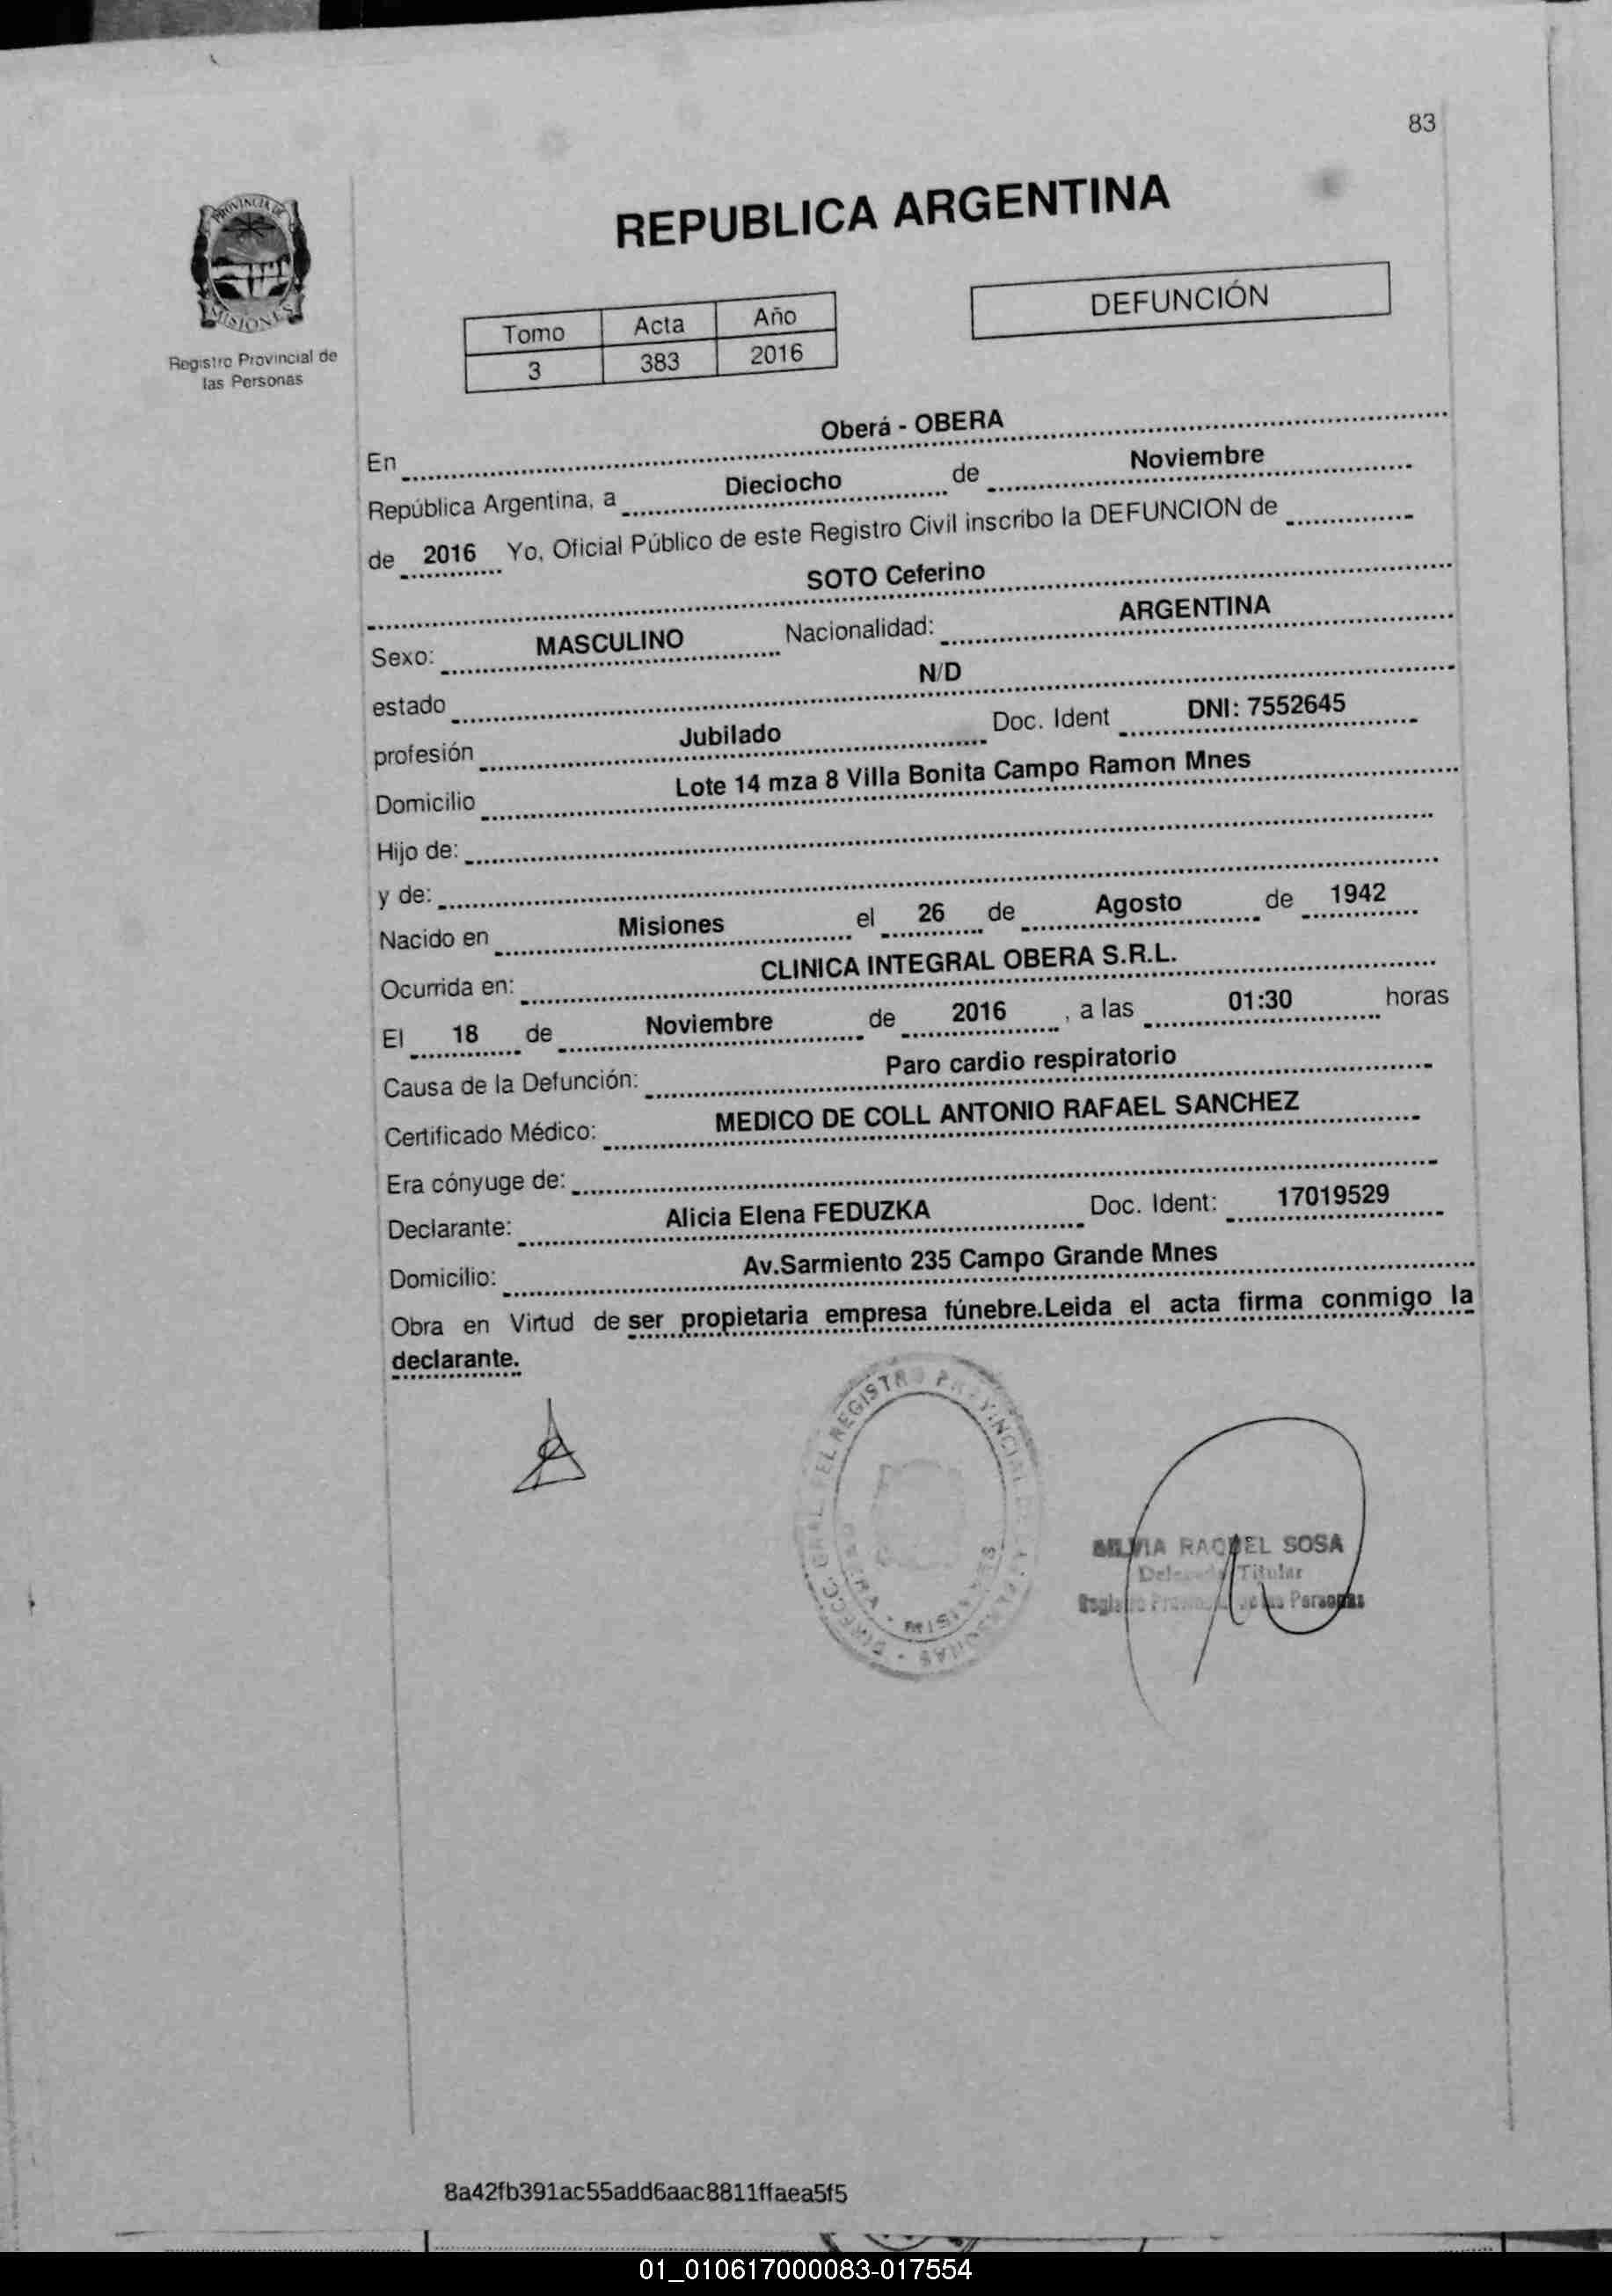 83
PROVINCIA DE
MISIONES
Registro Provincial de
las Personas
REPUBLICA ARGENTINA
Tomo Acta Año
3 383 2016
DEFUNCIÓN
En Oberá - OBERA
República Argentina, a Dieciocho de Noviembre
de 2016 Yo, Oficial Público de este Registro Civil inscribo la DEFUNCION de
SOTO Ceferino
Sexo: MASCULINO Nacionalidad: ARGENTINA
estado N/D
profesión Jubilado Doc. Ident DNI: 7552645
Domicilio Lote 14 mza 8 Villa Bonita Campo Ramon Mnes
Hijo de:
y de:
Nacido en Misiones el 26 de Agosto de 1942
Ocurrida en: CLINICA INTEGRAL OBERA S.R.L.
El 18 de Noviembre de 2016 , a las 01:30 horas
Causa de la Defunción: Paro cardio respiratorio
Certificado Médico: MEDICO DE COLL ANTONIO RAFAEL SANCHEZ
Era cónyuge de:
Declarante: Alicia Elena FEDUZKA Doc. Ident: 17019529
Domicilio: Av.Sarmiento 235 Campo Grande Mnes
Obra en Virtud de ser propietaria empresa fúnebre.Leida el acta firma conmigo la
declarante.
SILVIA RAQUEL SOSA
Titular
Personas
8a42fb391ac55add6aac8811ffaea5f5
01_010617000083-017554